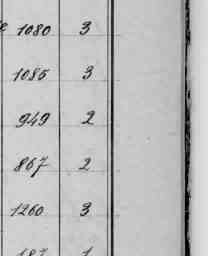 1080 3
1085 3
949 2
867 2
1260 3
187 1